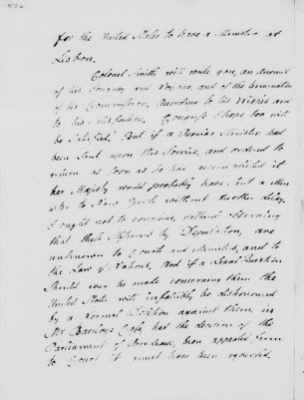 for the United States to have a Minister at
Lisbon.
Colonel Smith will write you, an account
of his Journey and Voyage, and of the termination
of his Commission, According to his Wishes and
to his satisfaction. Congress I hope, too will
be satisfied. But if a Foreign Minister had
been sent upon this Service, and ordered to
return as soon as he had accomplished it
her Majesty would probably have sent a Min
ister to New York without further delay.
I ought not to conclude, without observing
that these Missions by Deputation, are
unknown to Courts and
to
the Law of Nations, and if a Legal Question
should ever be made concerning them the
United States will infallibly be dishonoured
by a formal decision against them, in
Mr Barclays Case, had the decision of the
Parliament of Bordeaux, been appealed from
to Court it must have been reversed.